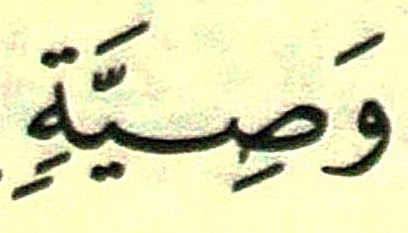 وَصِيَّةٍ